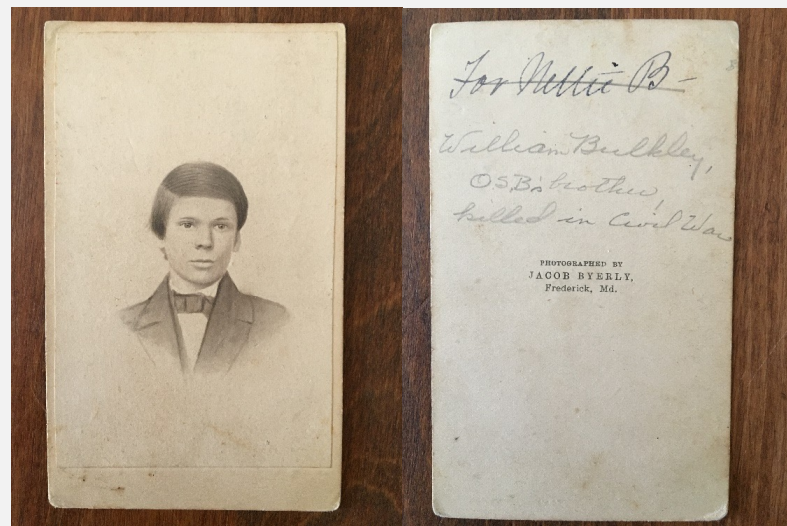 For Nettie B-
William Bulkley,
O.S.B's brother,
killed in Civil War
PHOTOGRAPHED BY
JACOB BYERLY,
Frederick, Md.